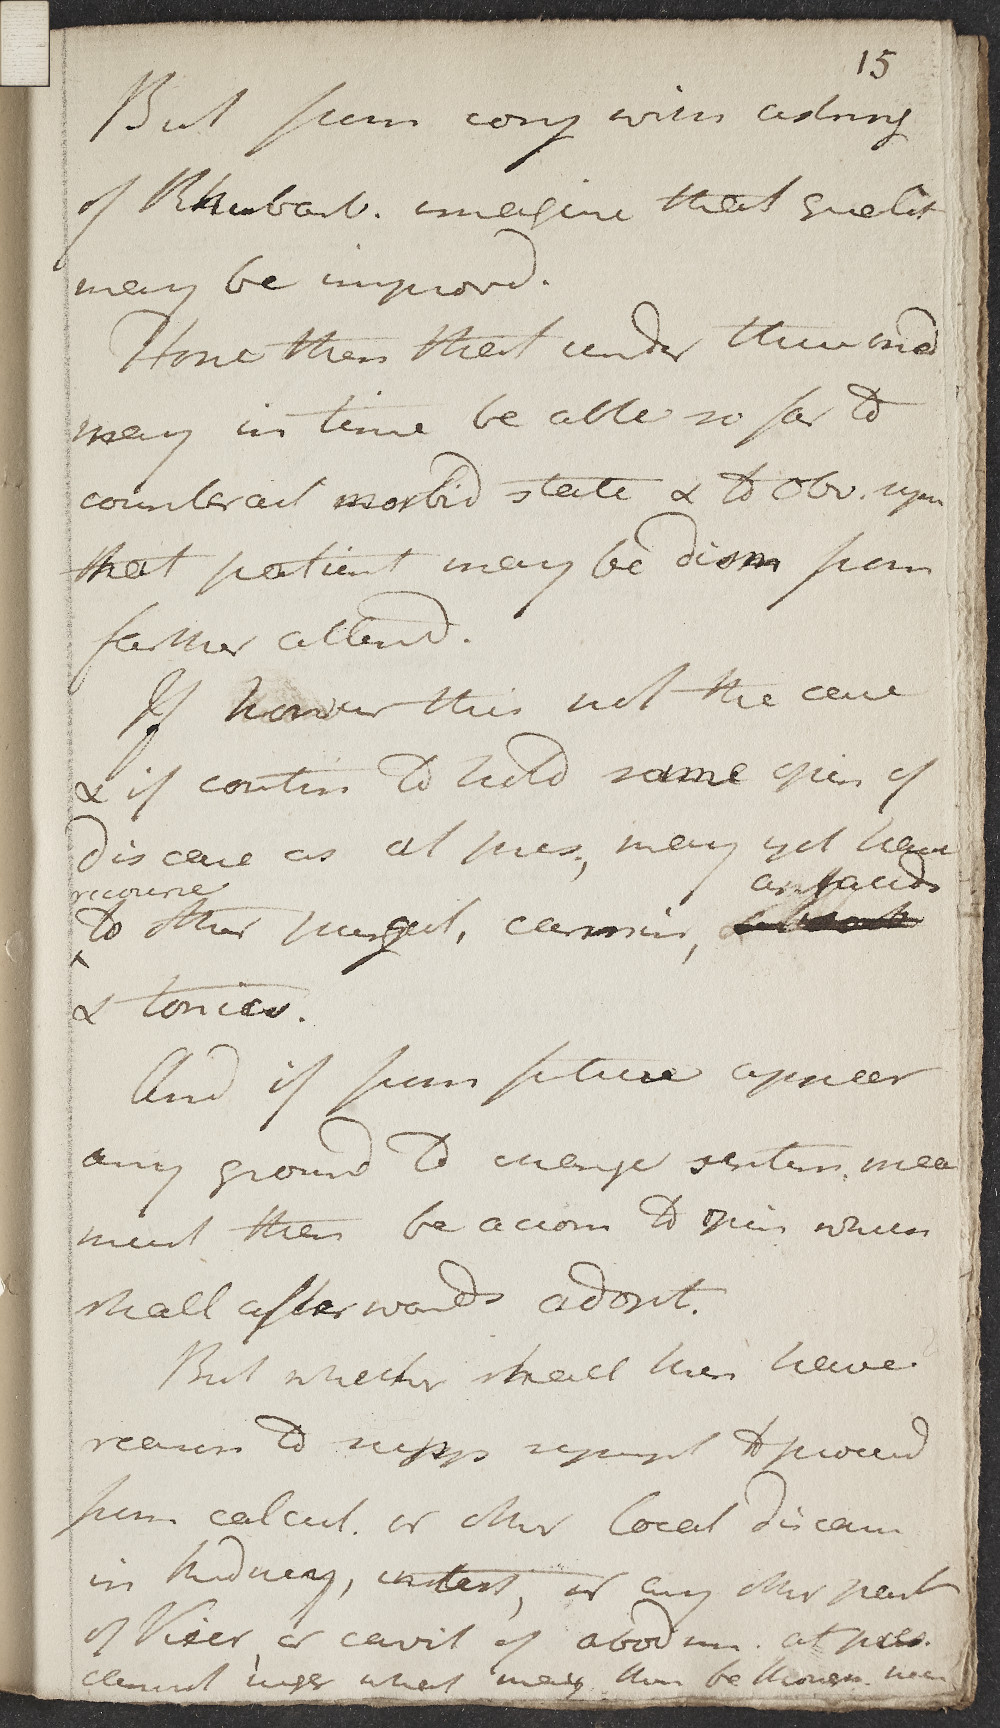 15
But from conj with adning
of Rhubarb. imagine that effect
may be improvd.
Hope then that under these med
may in time be able so far to
counteract morbid state & to Obv. sym
that patient may be dism from
farther attend.
If however this not the case
& if contin to hold same opin of
disease as at pres., may yet have
recourse antacids
to other purgat, carmin,
& tonics.
And if from future appear
any ground to change sentim. mea
must then be accom to opin which
shall afterwards adopt.
But whether shall then have
reason to supps sympt to proceed
from calcul. or other local disease
in kidney, intest, or any other part
of Viscer or cavit of abodmn. at pres.
cannot what may then be